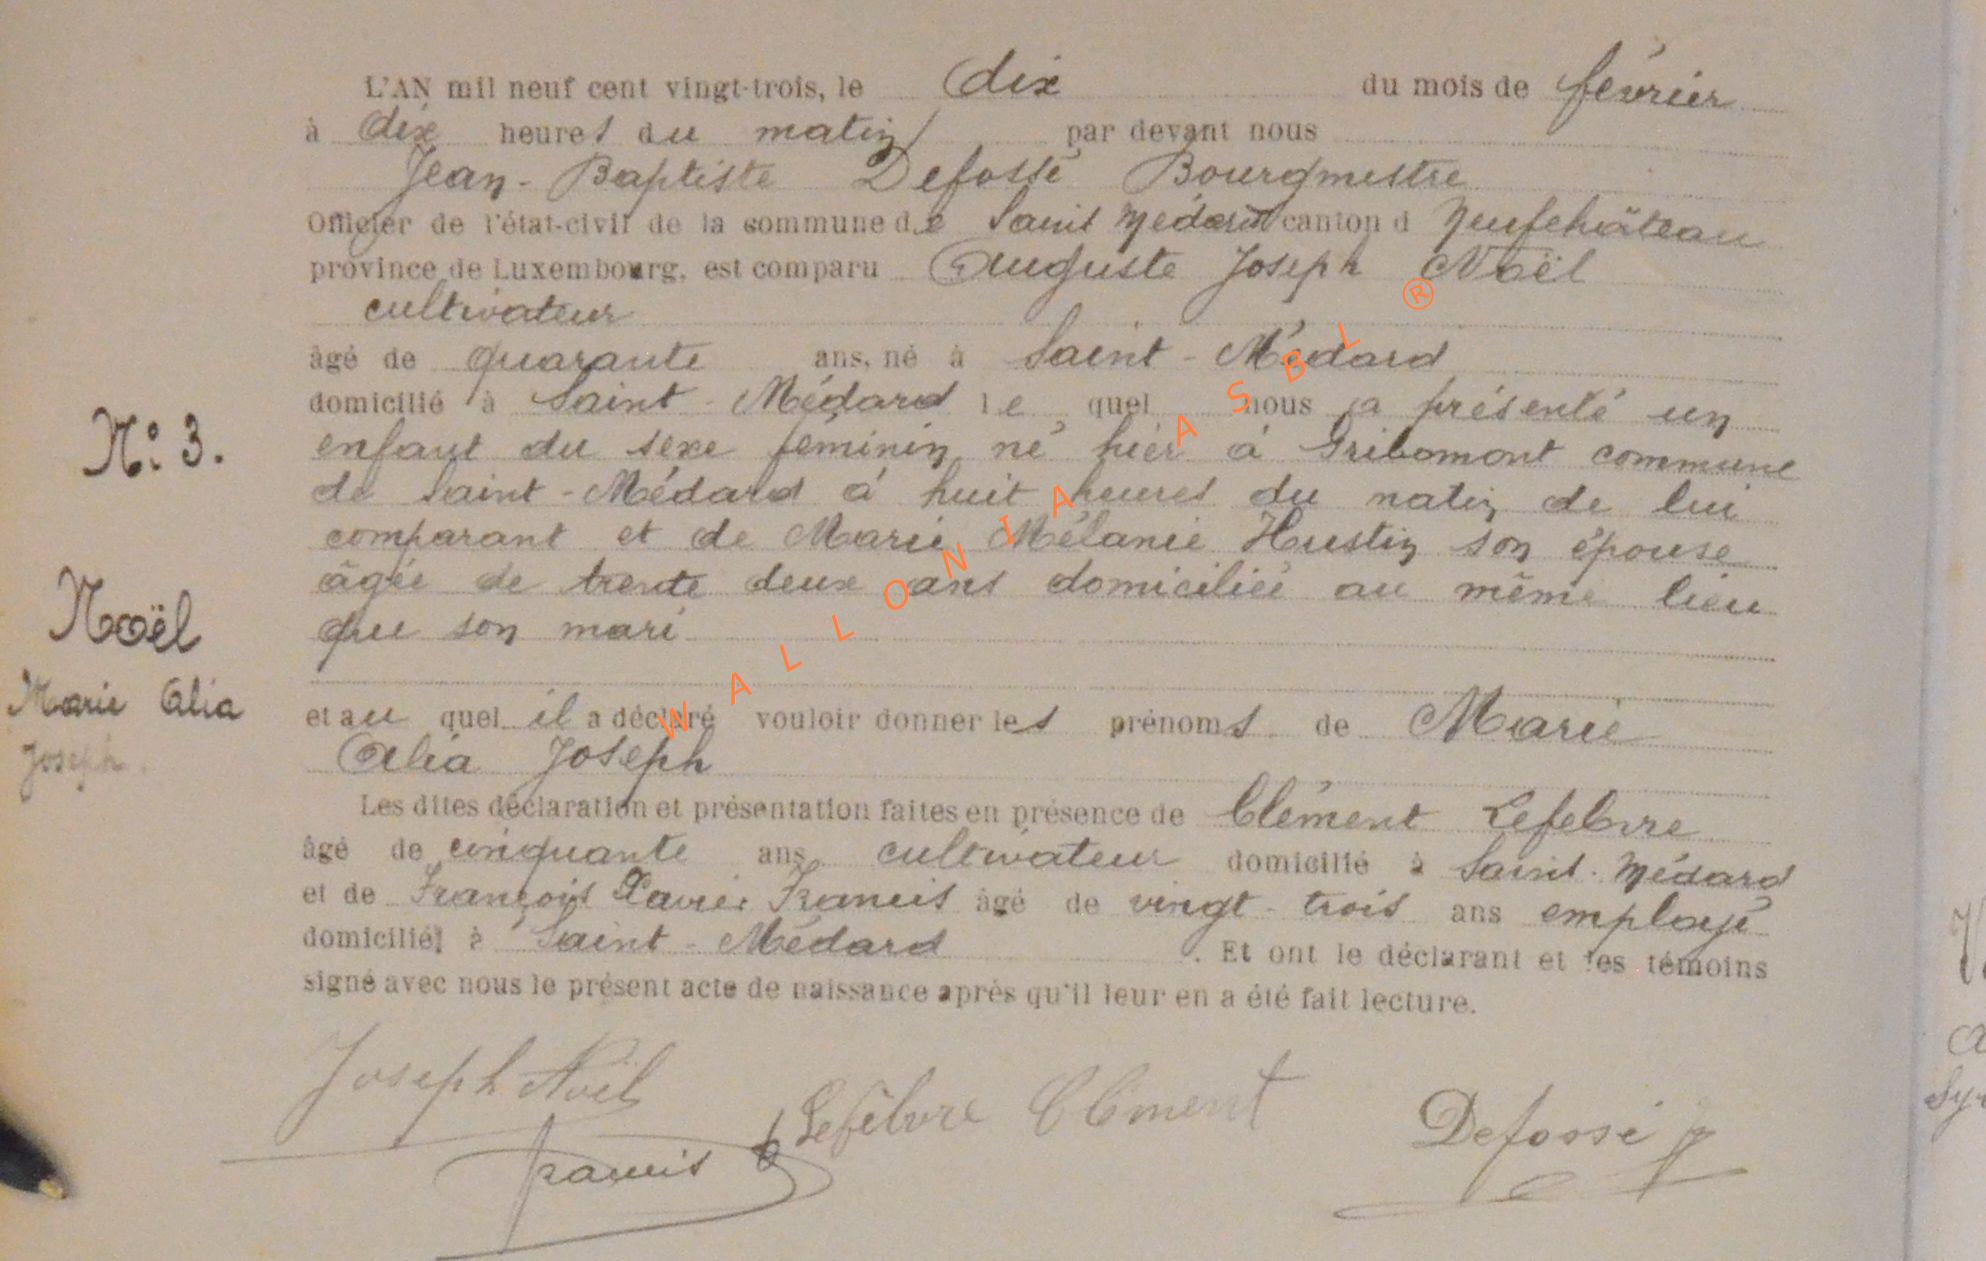 L'AN mil neuf cent vingt-trois, le dix du mois de février
à dix heures du matin par devant nous
Jean-Baptiste Defossé Bourgmestre
Officier de l'état-civil de la commune de Saint Médard canton d Neufchâteau
province de Luxembourg, est comparu Auguste Joseph Noël
cultivateur
âgé de quarante ans, né à Saint-Médard
domicilié à Saint-Médard le quel nous a présenté un
enfant du sexe féminin né hier à Gribomont commune
de Saint-Médard à huit heures du matin de lui
comparant et de Marie Mélanie Hustin son épouse
âgée de trente deux ans domiciliée au même lieu
que son mari
et au quel il a déclaré vouloir donner les prénoms de Marie
Alia Joseph
Les dites déclaration et présentation faites en présence de Clément Lefebvre
âgé de cinquante ans cultivateur domicilié à Saint-Médard
et de François Xavier Francis âgé de vingt-trois ans employé
domicilié à Saint-Médard . Et ont le déclarant et les témoins
signé avec nous le présent acte de naissance après qu'il leur en a été fait lecture.
N° 3.
Noël
Marie Alia
Joseph.
Joseph Noël
Lefèbvre Clément
Defossé
Francis
WALLONIA ASBL ®